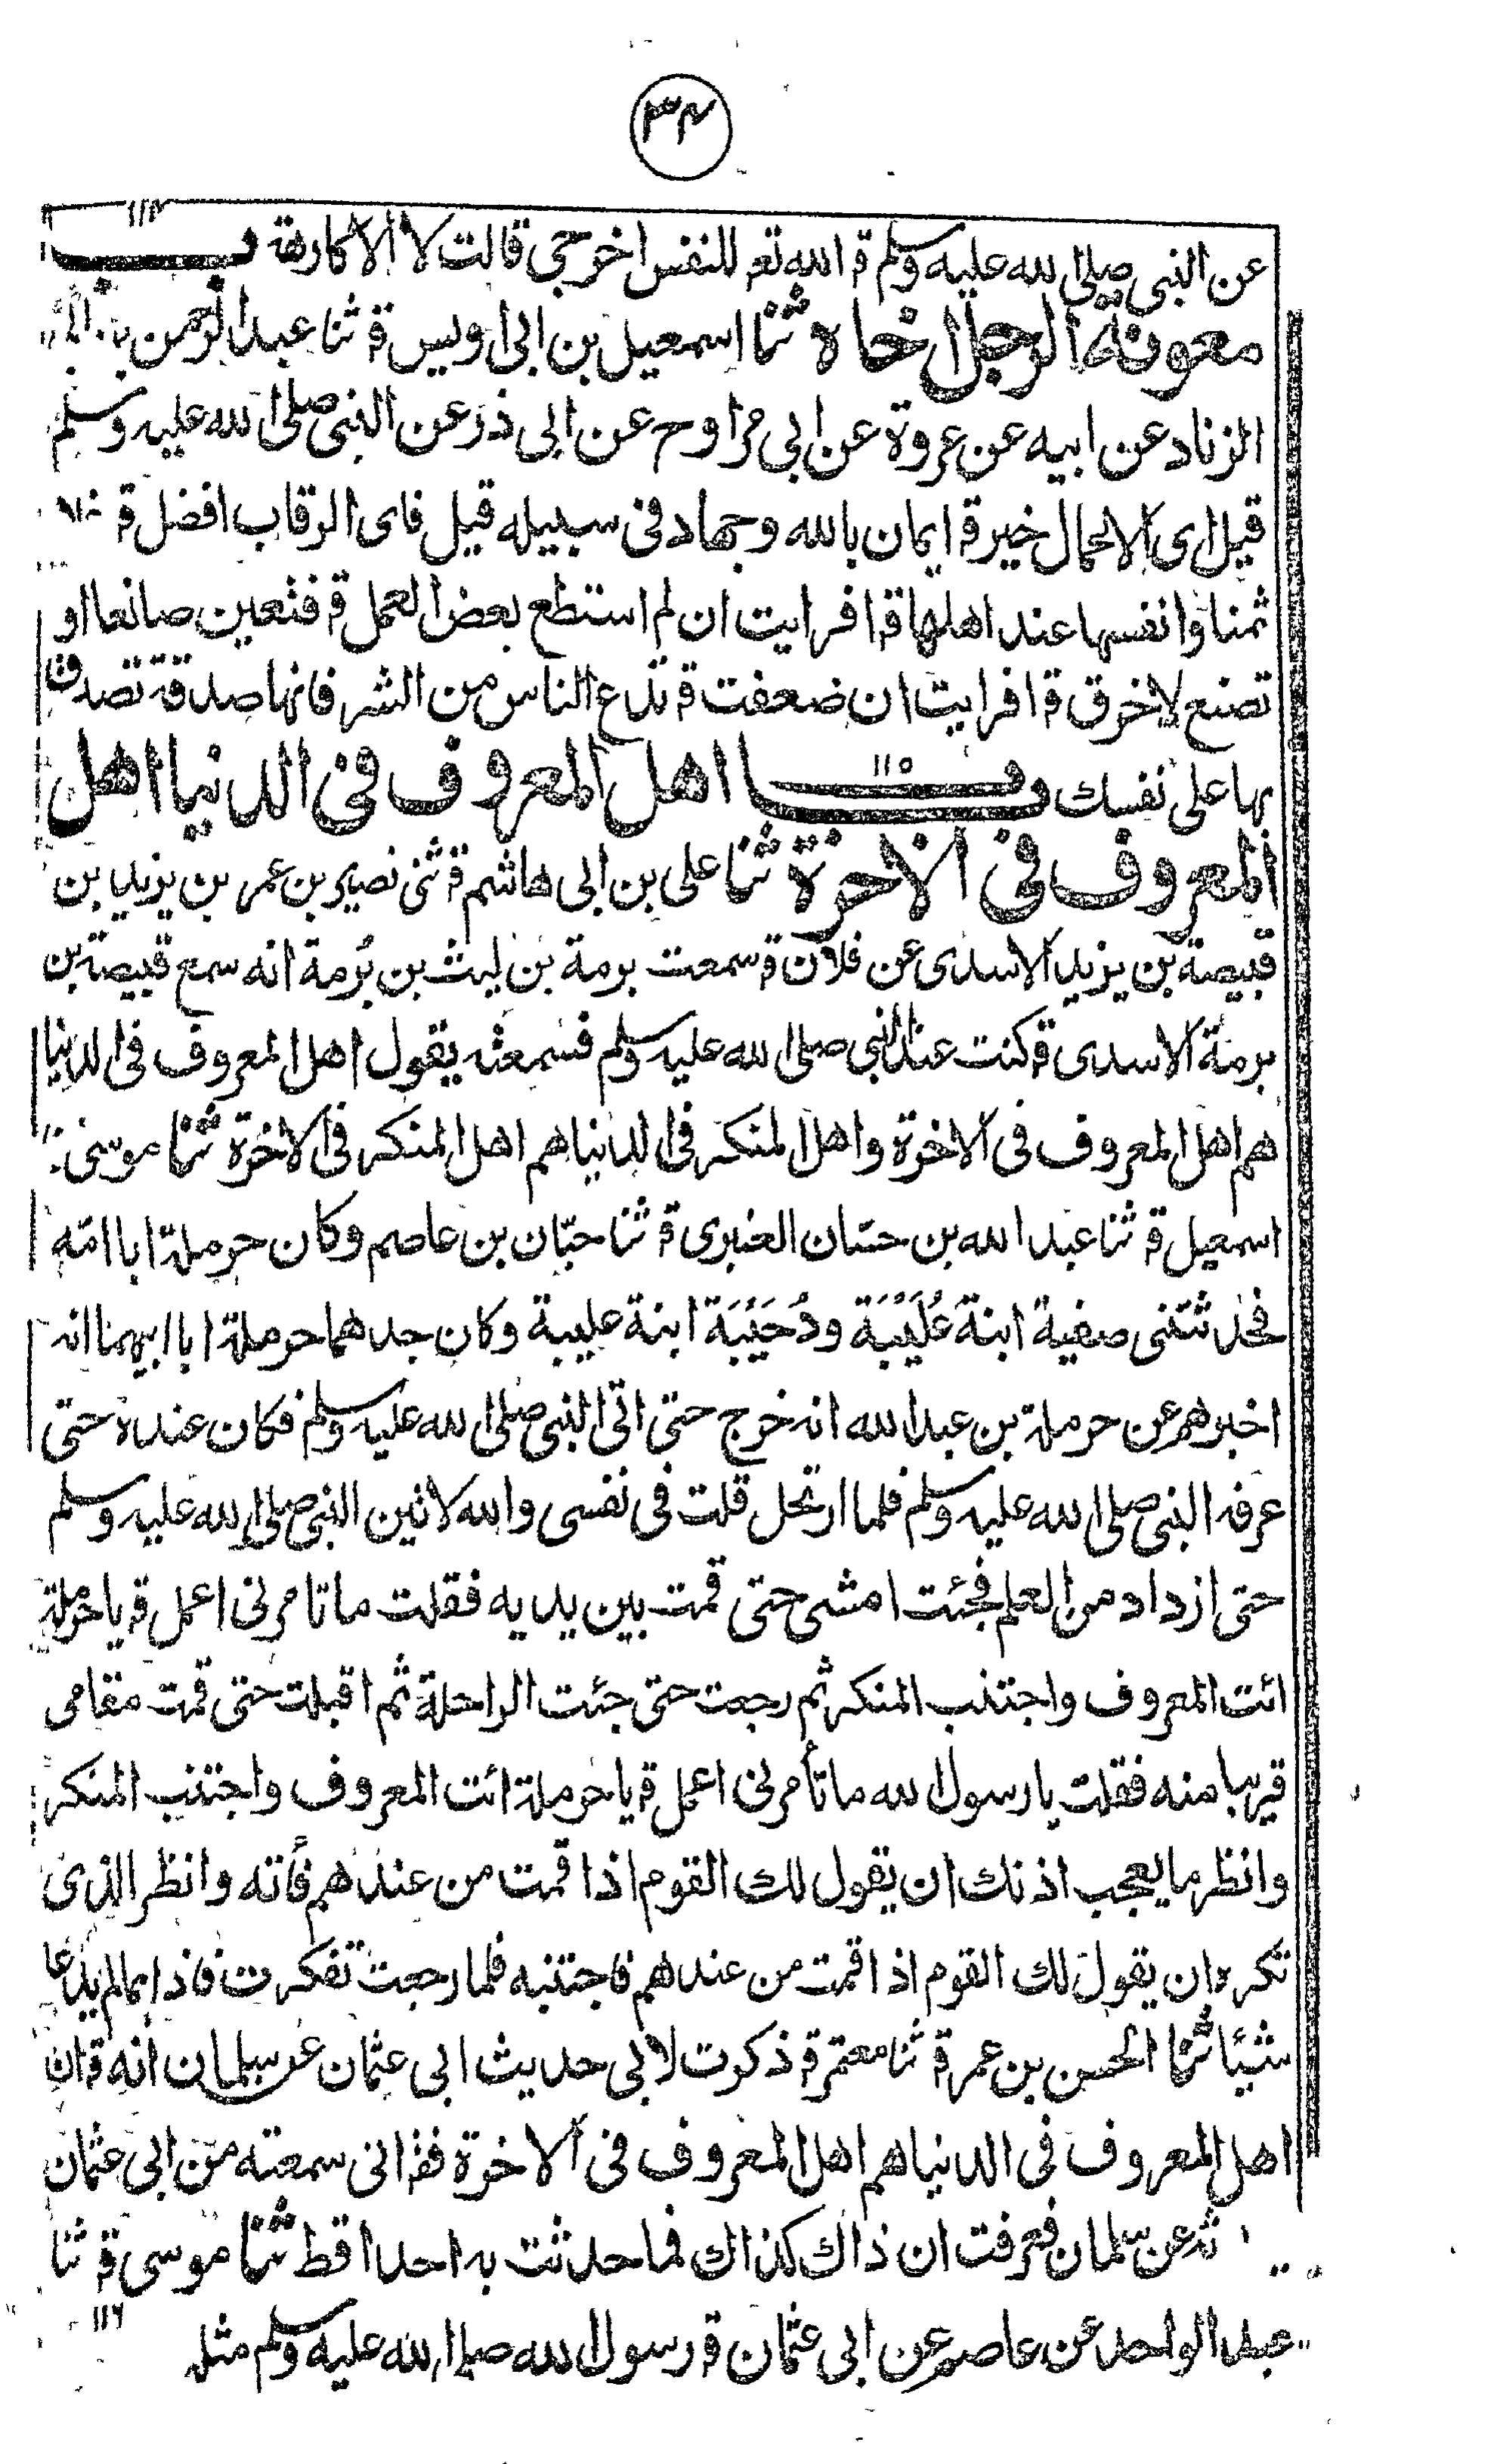 ٣٤
١١٤
عن النبى صلى الله عليه وسلم قۭ الله تعۭ للنفس اخرجى قالت لا الا كارهة بــــــاب
معونة الرجل اخاه ثنا اسمعيل بن ابى اويس قۭ ثنا عبد الرحمن بن ابى
الزناد عن ابيه عن عروة عن ابى مراوح عن ابى ذر عن النبى صلى الله عليه وسلم
قيل اى الاعمال خير قۭ ايمان بالله وجهاد فى سبيله قيل فاى الرقاب افضل قۭ
ثمنا وانفسها عند اهلها قۭ افرايت ان لم استطع بعض العمل قۭ فتعين صانعا او
تصنع لاخرق قۭ افرايت ان ضعفت قۭ تدع الناس من الشر فانها صدقة تصدق
بها على نفسك ١١٥ بــــــاب اهل المعروف فى الدنيا اهل
المعروف فى الاخرة ثنا على بن ابى هاشم قۭ ثنى نصير بن عمر بن يزيد بن
قبيصة بن يزيد الاسدى عن فلان قۭ سمعت برمة بن ليث بن بُرمة انه سمع قبيصة بن
برمة الاسدى قۭ كنت عند النبى صلى الله عليه وسلم فسمعته يقول اهل المعروف فى الدنيا
هم اهل المعروف فى الاخرة واهل المنكر فى الدنيا هم اهل المنكر فى الاخرة ثنا موسى بن
اسمعيل قۭ ثنا عبد الله بن حسّان العنبرى قۭ ثنا حبّان بن عاصم وكان حرملة ابا امّه
فحدثتنى صفية ابنة عُلَيْبَة ودُحَيْبَة ابنة عليبة وكان جدهما حرملة ابا ابيهما انه
اخبرهم عن حرملة بن عبد الله انه خرج حتى اتى النبى صلى الله عليه وسلم فكان عنده حتى
عرفه النبى صلى الله عليه وسلم فلما ارتحل قلت فى نفسى والله لاتين النبى صلى الله عليه وسلم
حتى ازداد من العلم فجئت امشى حتى قمت بين يديه فقلت ما تامرنى اعمل قۭ يا حرملة
ائت المعروف واجتنب المنكر ثم رجعت حتى جئت الراحلة ثم اقبلت حتى قمت مقامى
قريبا منه فقلت يا رسول الله ما تأمرنى اعمل قۭ يا حرملة ائت المعروف واجتنب المنكر
وانظر ما يعجب اذنك ان يقول لك القوم اذا قمت من عندهم فأته وانظر الذى
تكره ان يقول لك القوم اذا قمت من عندهم فاجتنبه فلما رجعت تفكرت فاذا هما لم يدعا
شيئا ثنا الحسن بن عمر قۭ ثنا معتمر قۭ ذكرت لابى حديث ابى عثمان عن سلمان انه قۭ ان
اهل المعروف فى الدنيا هم اهل المعروف فى الاخرة فقۭ انى سمعته من ابى عثمان
عن سلمان فعرفت ان ذاك كذاك فما حدثت به احدا قط ثنا موسى قۭ ثنا
عبد الواحد عن عاصم عن ابى عثمان قۭ رسول الله صلى الله عليه وسلم مثله
١١٦